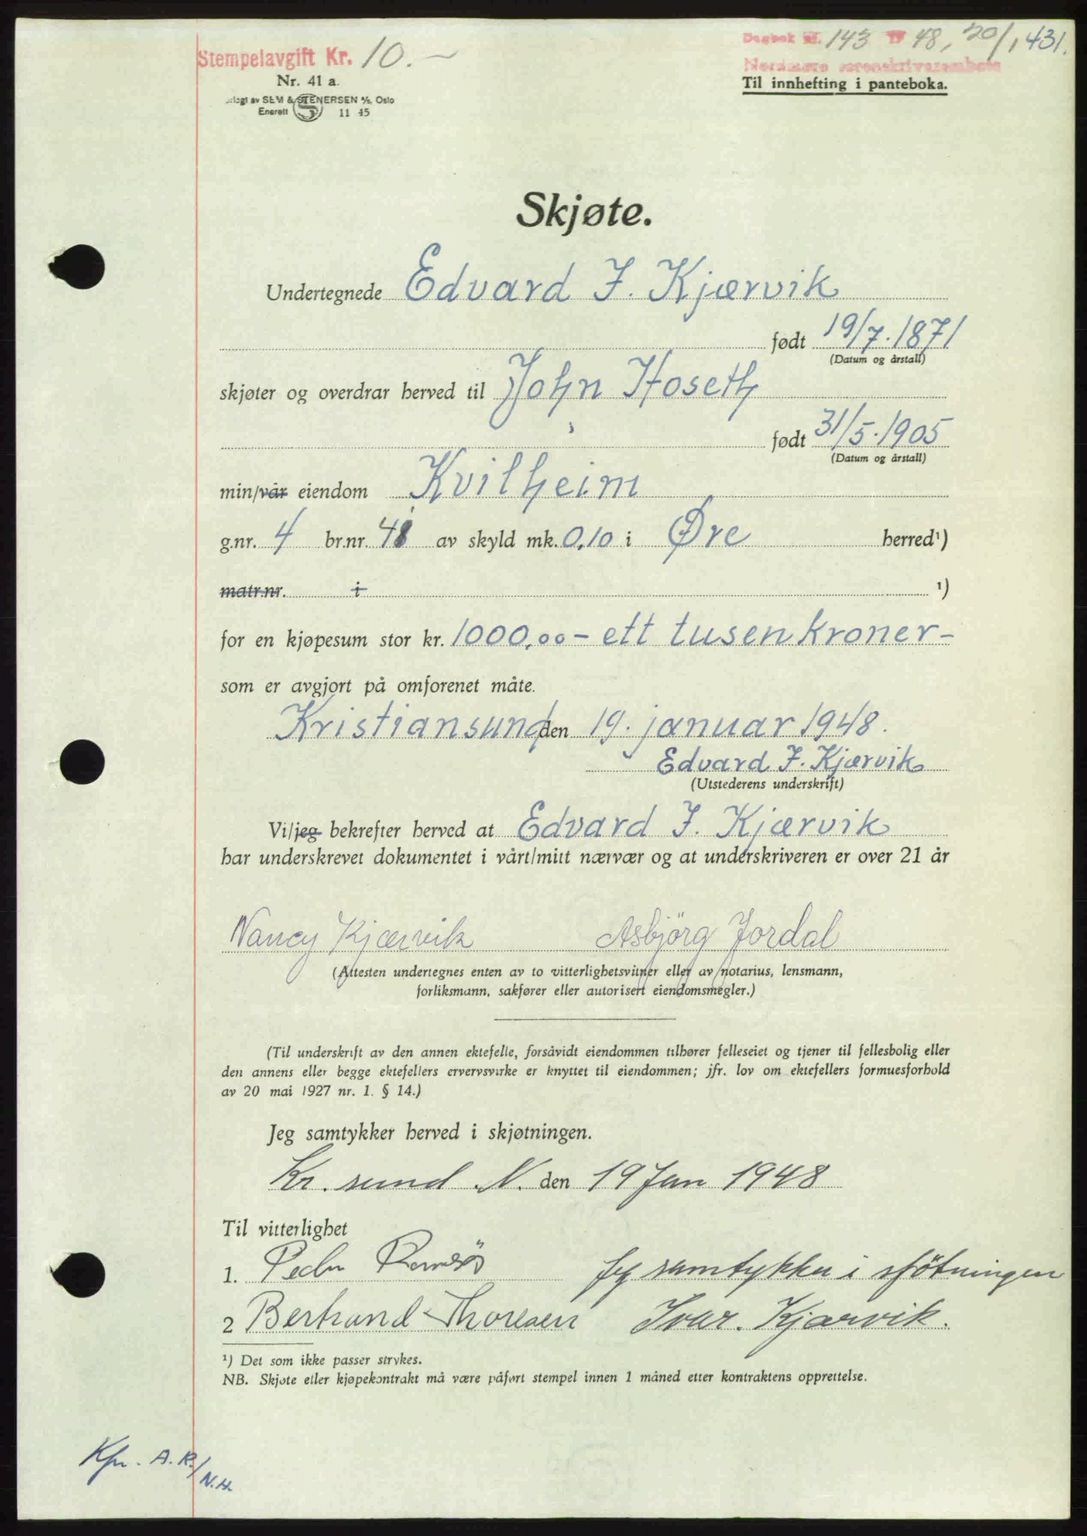 Stempelavgift Kr. 10.-
Dagbok nr. 143 19 48, 20/1 431.
Nordmøre sorenskriverembete
Nr. 41 a.
Til innhefting i panteboka.
SEM & STENERSEN A/S, Oslo
Enerett 11 45
Skjøte.
Undertegnede Edvard J. Kjærvik
født 19/7.1871
(Datum og årstall)
skjøter og overdrar herved til John Hoseth
født 31/5.1905
(Datum og årstall)
min/vår eiendom Kvilheim
g.nr. 4 br.nr. 48 av skyld mk. 0,10 i Øre herred¹)
matr.nr. i ¹)
for en kjøpesum stor kr. 1000,00 - ett tusen kroner -
som er avgjort på omforenet måte.
Kristiansund den 19. januar 1948.
Edvard J. Kjærvik
(Utstederens underskrift)
Vi/jeg bekrefter herved at Edvard J. Kjærvik
har underskrevet dokumentet i vårt/mitt nærvær og at underskriveren er over 21 år
Nancy Kjærvik Asbjörg Jordal
(Attesten undertegnes enten av to vitterlighetsvitner eller av notarius, lensmann,
forliksmann, sakfører eller autorisert eiendomsmegler.)
(Til underskrift av den annen ektefelle, forsåvidt eiendommen tilhører felleseiet og tjener til fellesbolig eller
den annens eller begge ektefellers ervervsvirke er knyttet til eiendommen; jfr. lov om ektefellers formuesforhold
av 20 mai 1927 nr. 1. § 14.)
Jeg samtykker herved i skjøtningen.
Kr. sund N. den 19 Jan 1948
Til vitterlighet
1. Jeg samtykker i sjötningen
2 Bertrand Thoresen Ivar. Kjærvik.
¹) Det som ikke passer strykes.
NB. Skjøte eller kjøpekontrakt må være påført stempel innen 1 måned etter kontraktens opprettelse.
Kfr. A.R./N.H.